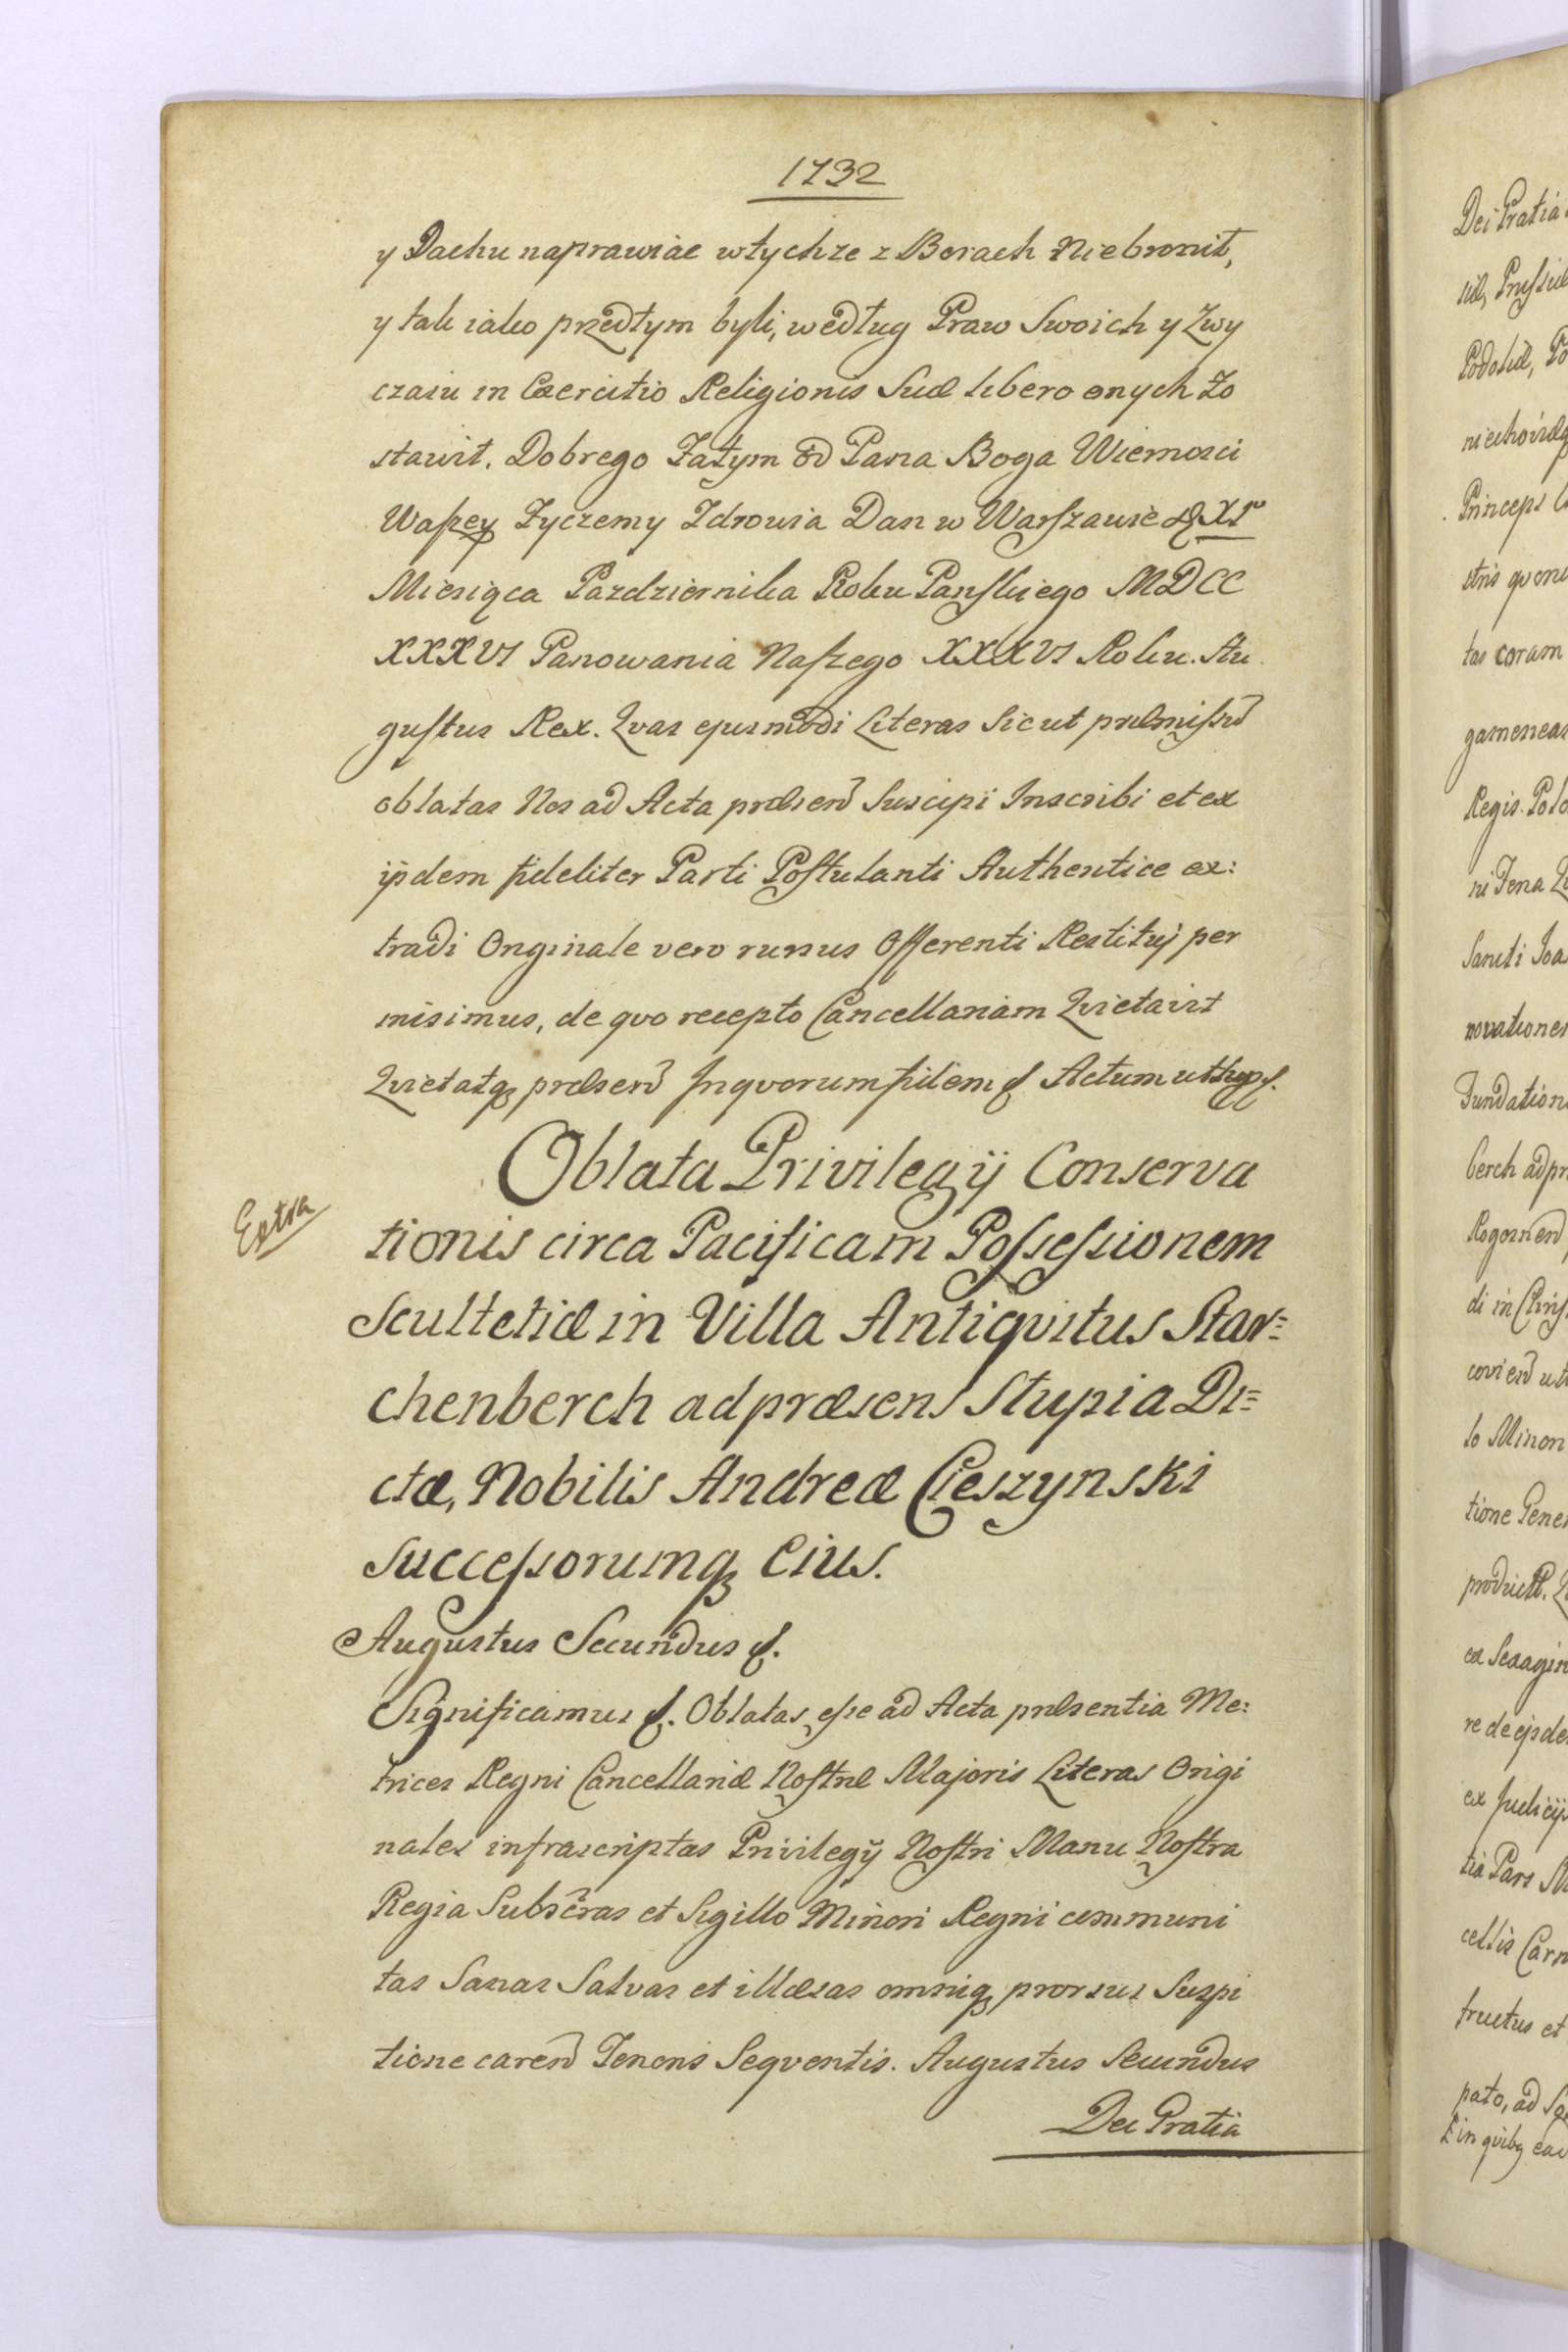 1732
y Dachu naprawiac wtychze z Borach Niebronit,
y tak iako przedtym byli, według Praw Swoich y Zwy
czaiu in Exercitio Religionis Suæ libero onych Zo
stawit. Dobrego Zatym od Pana Boga Wiernosci
Waszey Zyczemy Zdrowia Dan w Warszawie D. XI°
Miesiąca Pazdziernika Roku Panskiego MDCC
XXXVI Panowania Naszego XXXVI Roku. Au
gustus Rex. Qvas ejusmodi Literas Sicut præmissũ
oblatas Nos ad Acta præsend Suscipi Inscribi et ex
ijsdem fideliter Parti Postulanti Authentice ex:
tradi Originale vero rursus Offerenti Restituj per
misimus, de qvo recepto Cancellariam Qvietavit
Qvietatq præsend Inqvorum fidem &. Actum ut supr.
Oblata Privilegij Conserva
Extra
tionis circa Pacificam Possessionem
Scultetiæ in Villa Antiqvitus Star=
chenberch ad præsens Stupia Di=
ctæ, Nobilis Andreæ Cieszynski
Successorumq Eius.
Augustus Secundus &.
Significamus &. Oblatas esse ad Acta præsentia Me:
trices Regni Cancellariæ Nostræ Majoris Literas Origi
nales infrascriptas Privilegij Nostri Manu Nostra
Regia Subscras et Sigillo Minori Regni communi
tas Sanas Salvas et illæsas omniq prorsus Suspi
tione carend Tenoris Seqventis. Augustus Secundus
Dei Gratia
Dei Gratia
Princeps
tas coram
gameneas
Regis. Polo
Sancti Joa
novationem
Fundatione
berch ad pr
lo Minori
tione Gene
ex Sexagin
fructus et
pato, ad